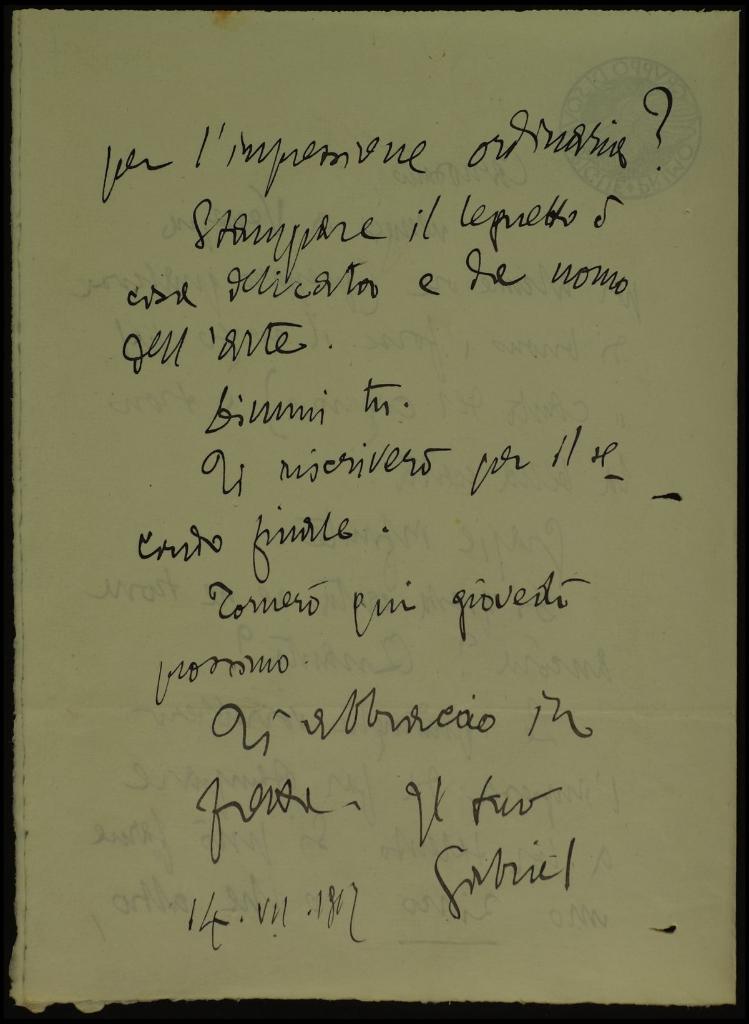 per l'impressione ordinaria?
Stampare il legnetto è
cosa delicata e da uomo
dell'arte.
Dimmi tu.
Ti riscriverò per il se-
condo finale.
Tornerò qui giovedì
prossimo.
Ti abbraccio in
fretta. Il tuo
Gabriel
14.VII.1917